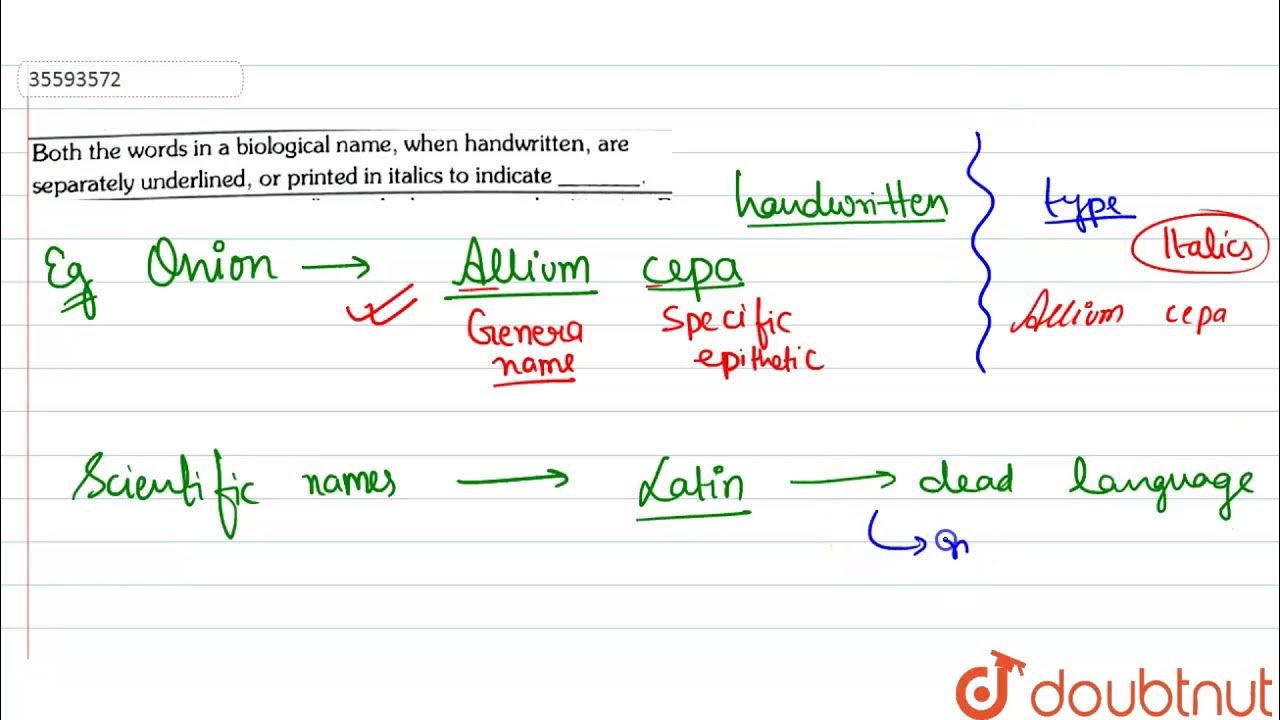 35593572
Both the words in a biological name, when handwritten, are
separately underlined, or printed in italics to indicate ________.
handwritten
type
Italics
Eg Onion → Allium cepa
Genera name
Specific epithetic
Allium cepa
Scientific names → Latin → dead language
doubtnut